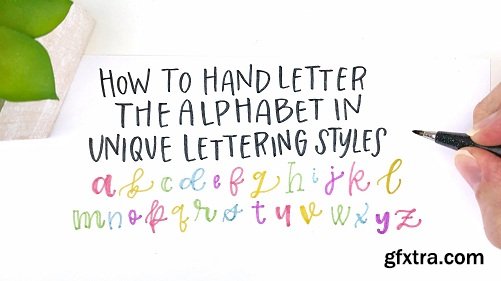 HOW TO HAND LETTER
THE ALPHABET IN
UNIQUE LETTERING STYLES
a b c d e f g h i j k l
m n o p q r s t u v w x y z
gfxtra.com